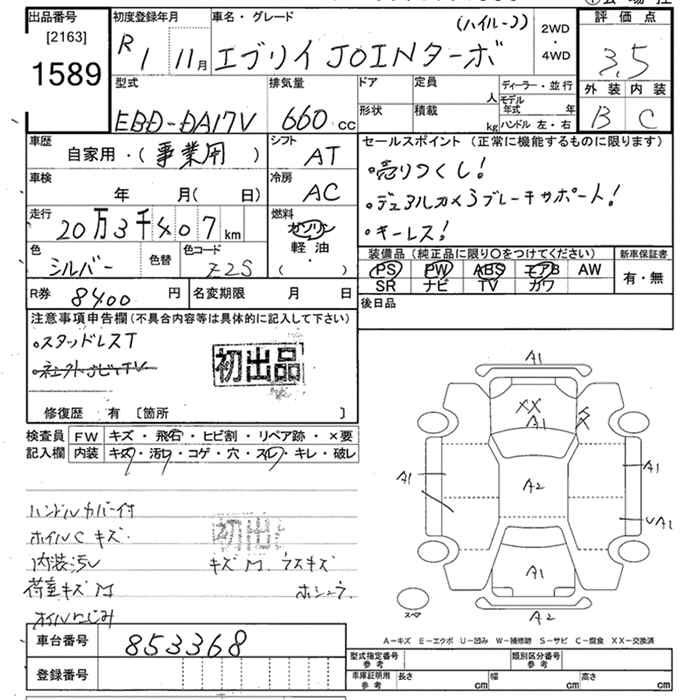 出品番号
[2163]
1589
初度登録年月
R1 11月
車名・グレード
(ハイルーフ)
エブリイ JOINターボ
2WD
・
4WD
評価点
3.5
外装 内装
B C
型式
EBD-DA17V
排気量
660 cc
ドア
定員
人
形状
積載
kg
ディーラー・並行
モデル年式 年
ハンドル 左・右
車歴
自家用・(事業用)
シフト
AT
車検
年 月(日)
冷房
AC
走行
20万3千407km
燃料
ガソリン
軽油
(・)
色
シルバー
色替
色コード
Z2S
R券
8400円
名変期限 月 日
セールスポイント(正常に機能するものに限ります)
・売りつくし!
・デュアルカメラブレーキサポート!
・キーレス!
装備品(純正品に限り○をつけてください)
新車保証書
PS PW ABS エアB AW
SR ナビ TV カワ
有・無
後日品
注意事項申告欄(不具合内容等は具体的に記入して下さい)
・スタッドレスT
初出品
修復歴 有 〔箇所 〕
検査員
記入欄
FW キズ・飛石・ヒビ割・リペア跡・×要
内装 キズ・汚レ・コゲ・穴・スレ・キレ・破レ
ハンドルカバー付
ホイルCキズ
初出
内装汚レ
キズM. ラスキズ
荷室キズM
オイルにじみ
A1
XX
A1
A1
A1
A2
UA1
A1
A2
スペア
A-キズ E-エクボ U-凹み W-補修跡 S-サビ C-腐食 XX-交換済
車台番号
853368
登録番号
型式指定番号
参考
類別区分番号
参考
車庫証明用
参考
長さ cm
幅 cm
高さ cm